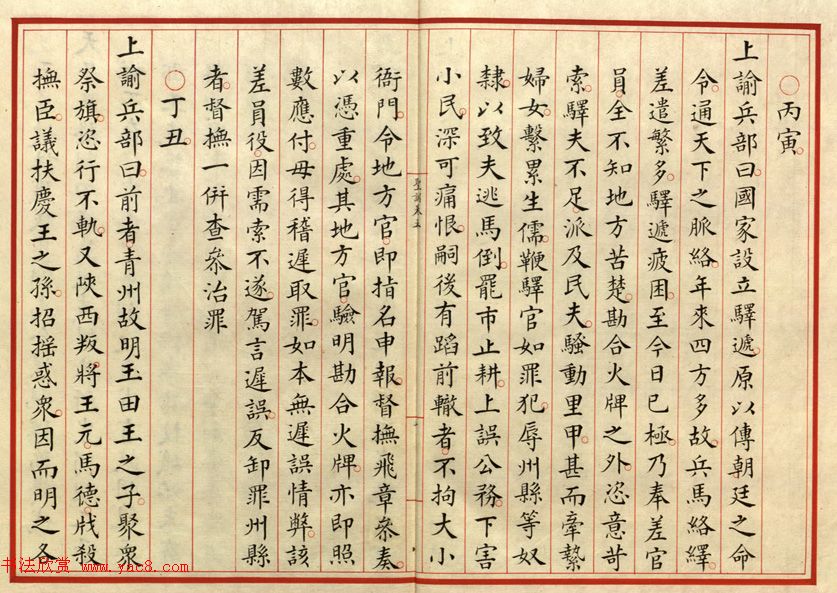 ○丙寅
上諭兵部曰國家設立驛遞原以傳朝廷之命
令通天下之脈絡年來四方多故兵馬絡繹
差遣繁多驛遞疲困至今日已極乃奉差官
員全不知地方苦楚勘合火牌之外恣意苛
索驛夫不足派及民夫騷動里甲甚而牽縶
婦女繫累生儒鞭驛官如罪犯辱州縣等奴
隸以致夫逃馬倒罷市止耕上誤公務下害
小民深可痛恨嗣後有蹈前轍者不拘大小
聖訓卷五
衙門令地方官即指名申報督撫飛章叅奏
以憑重處其地方官驗明勘合火牌亦即照
數應付毋得稽遲取罪如本無遲誤情弊該
差員役因需索不遂駕言遲誤反卸罪州縣
者督撫一併查叅治罪
○丁丑
上諭兵部曰前者青州故明玉田王之子聚衆
祭旗恣行不軌又陝西叛將王元馬德戕殺
撫臣議扶慶王之孫招搖惑衆因而明之各
书法欣赏 www.yac8.com